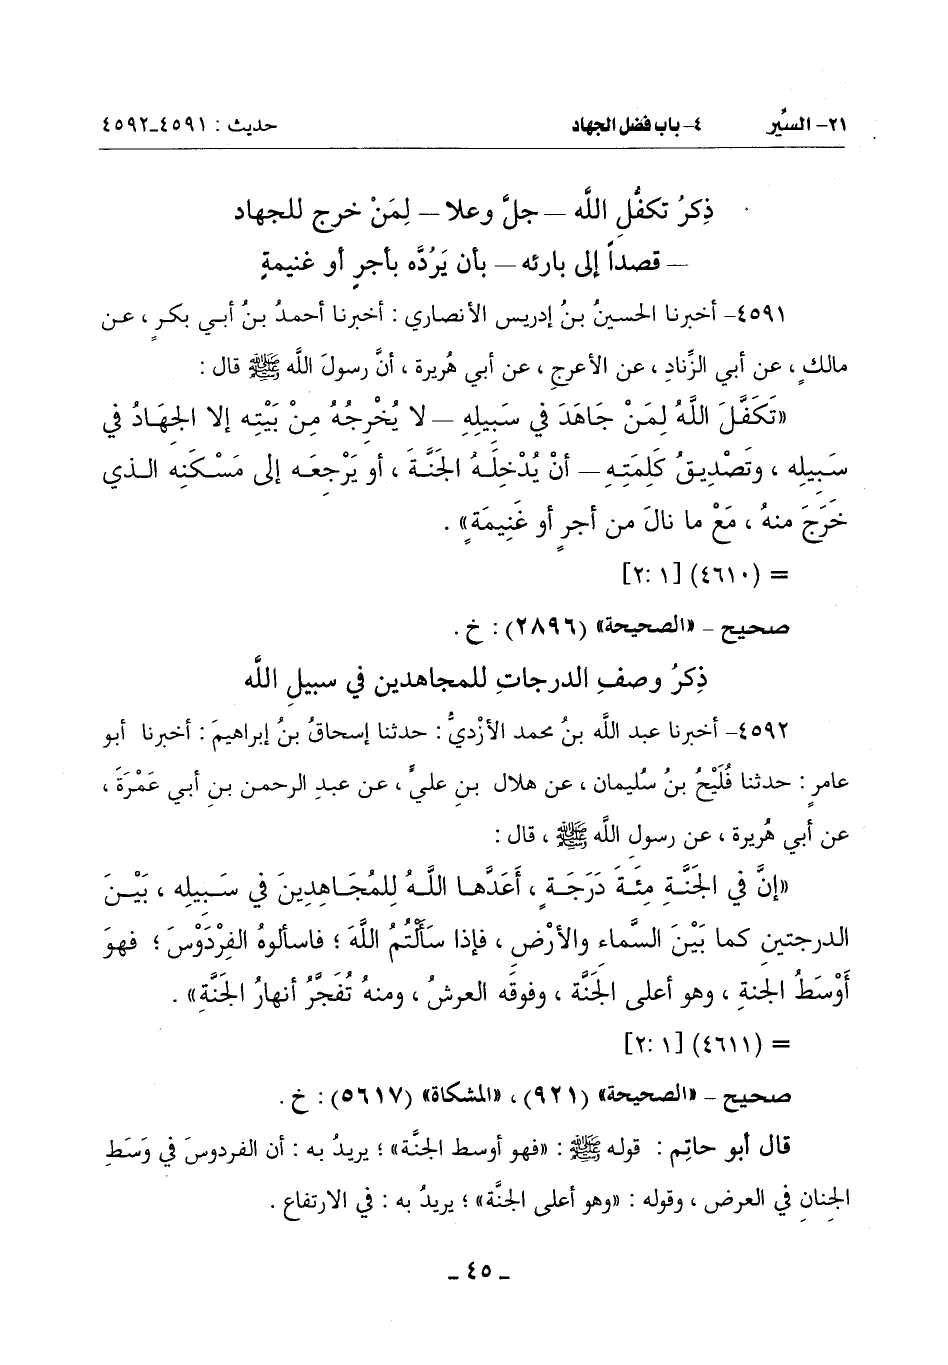 ٢١- السِّير ٤- باب فضل الجهاد حديث : ٤٥٩١-٤٥٩٢
ذِكرُ تكفُّلِ اللَّه – جلَّ وعلا – لِمَنْ خرج للجهاد
– قصداً إلى بارئه – بأن يَرُدَّه بأجرٍ أو غنيمةٍ
٤٥٩١- أخبرنا الحسينُ بنُ إدريس الأنصاري : أخبرنا أحمدُ بنُ أبي بكرٍ ، عن
مالكٍ ، عن أبي الزِّنادِ ، عن الأعرجِ ، عن أبي هُريرة ، أنَّ رسولَ اللَّه ﷺ قال :
«تَكَفَّلَ اللَّهُ لِمَنْ جَاهَدَ في سَبِيلِهِ – لا يُخْرِجُهُ مِنْ بَيْتِه إلا الجِهَادُ في
سَبِيلِه ، وتَصْدِيقُ كَلِمَتِهِ – أنْ يُدْخِلَهُ الجَنَّةَ ، أو يَرْجِعَه إلى مَسْكَنِه الذي
خَرَجَ منهُ ، مَعْ ما نالَ من أجرٍ أو غَنِيمَةٍ» .
= (٤٦١٠) [١ :٢]
صحيح - «الصحيحة» (٢٨٩٦) : خ .
ذِكرُ وصفِ الدرجاتِ للمجاهدين في سبيلِ اللَّه
٤٥٩٢- أخبرنا عبد اللَّه بنُ محمد الأزْديُّ : حدثنا إسحاقُ بنُ إبراهيمَ : أخبرنا أبو
عامرٍ : حدثنا فُلَيْحُ بنُ سُليمان ، عن هلال بنِ عليٍّ ، عن عبدِ الرحمن بنِ أبي عَمْرَةَ ،
عن أبي هُريرة ، عن رسولِ اللَّه ﷺ ، قال :
«إنَّ في الجَنَّةِ مِئَةَ دَرَجَةٍ ، أَعَدَّها اللَّهُ للمُجَاهِدِينَ في سَبِيلِه ، بَيْنَ
الدرجتينِ كما بَيْنَ السَّماءِ والأرْضِ ، فإذا سَأَلْتُمُ اللَّهَ ؛ فاسألوهُ الفِرْدَوْسَ ؛ فهوَ
أَوْسَطُ الجنةِ ، وهو أعلى الجَنَّة ، وفوقَه العرشُ ، ومنهُ تُفَجَّرُ أنهارُ الجَنَّةِ» .
= (٤٦١١) [١ :٢]
صحيح - «الصحيحة» (٩٢١) ، «المشكاة» (٥٦١٧) : خ .
قال أبو حاتِم : قوله ﷺ : «فهو أوسط الجنَّة» ؛ يريدُ به : أن الفردوسَ في وَسَطِ
الجِنانِ في العرض ، وقوله : «وهو أعلى الجنَّة» ؛ يريدُ به : في الارتفاع .
- ٤٥ -